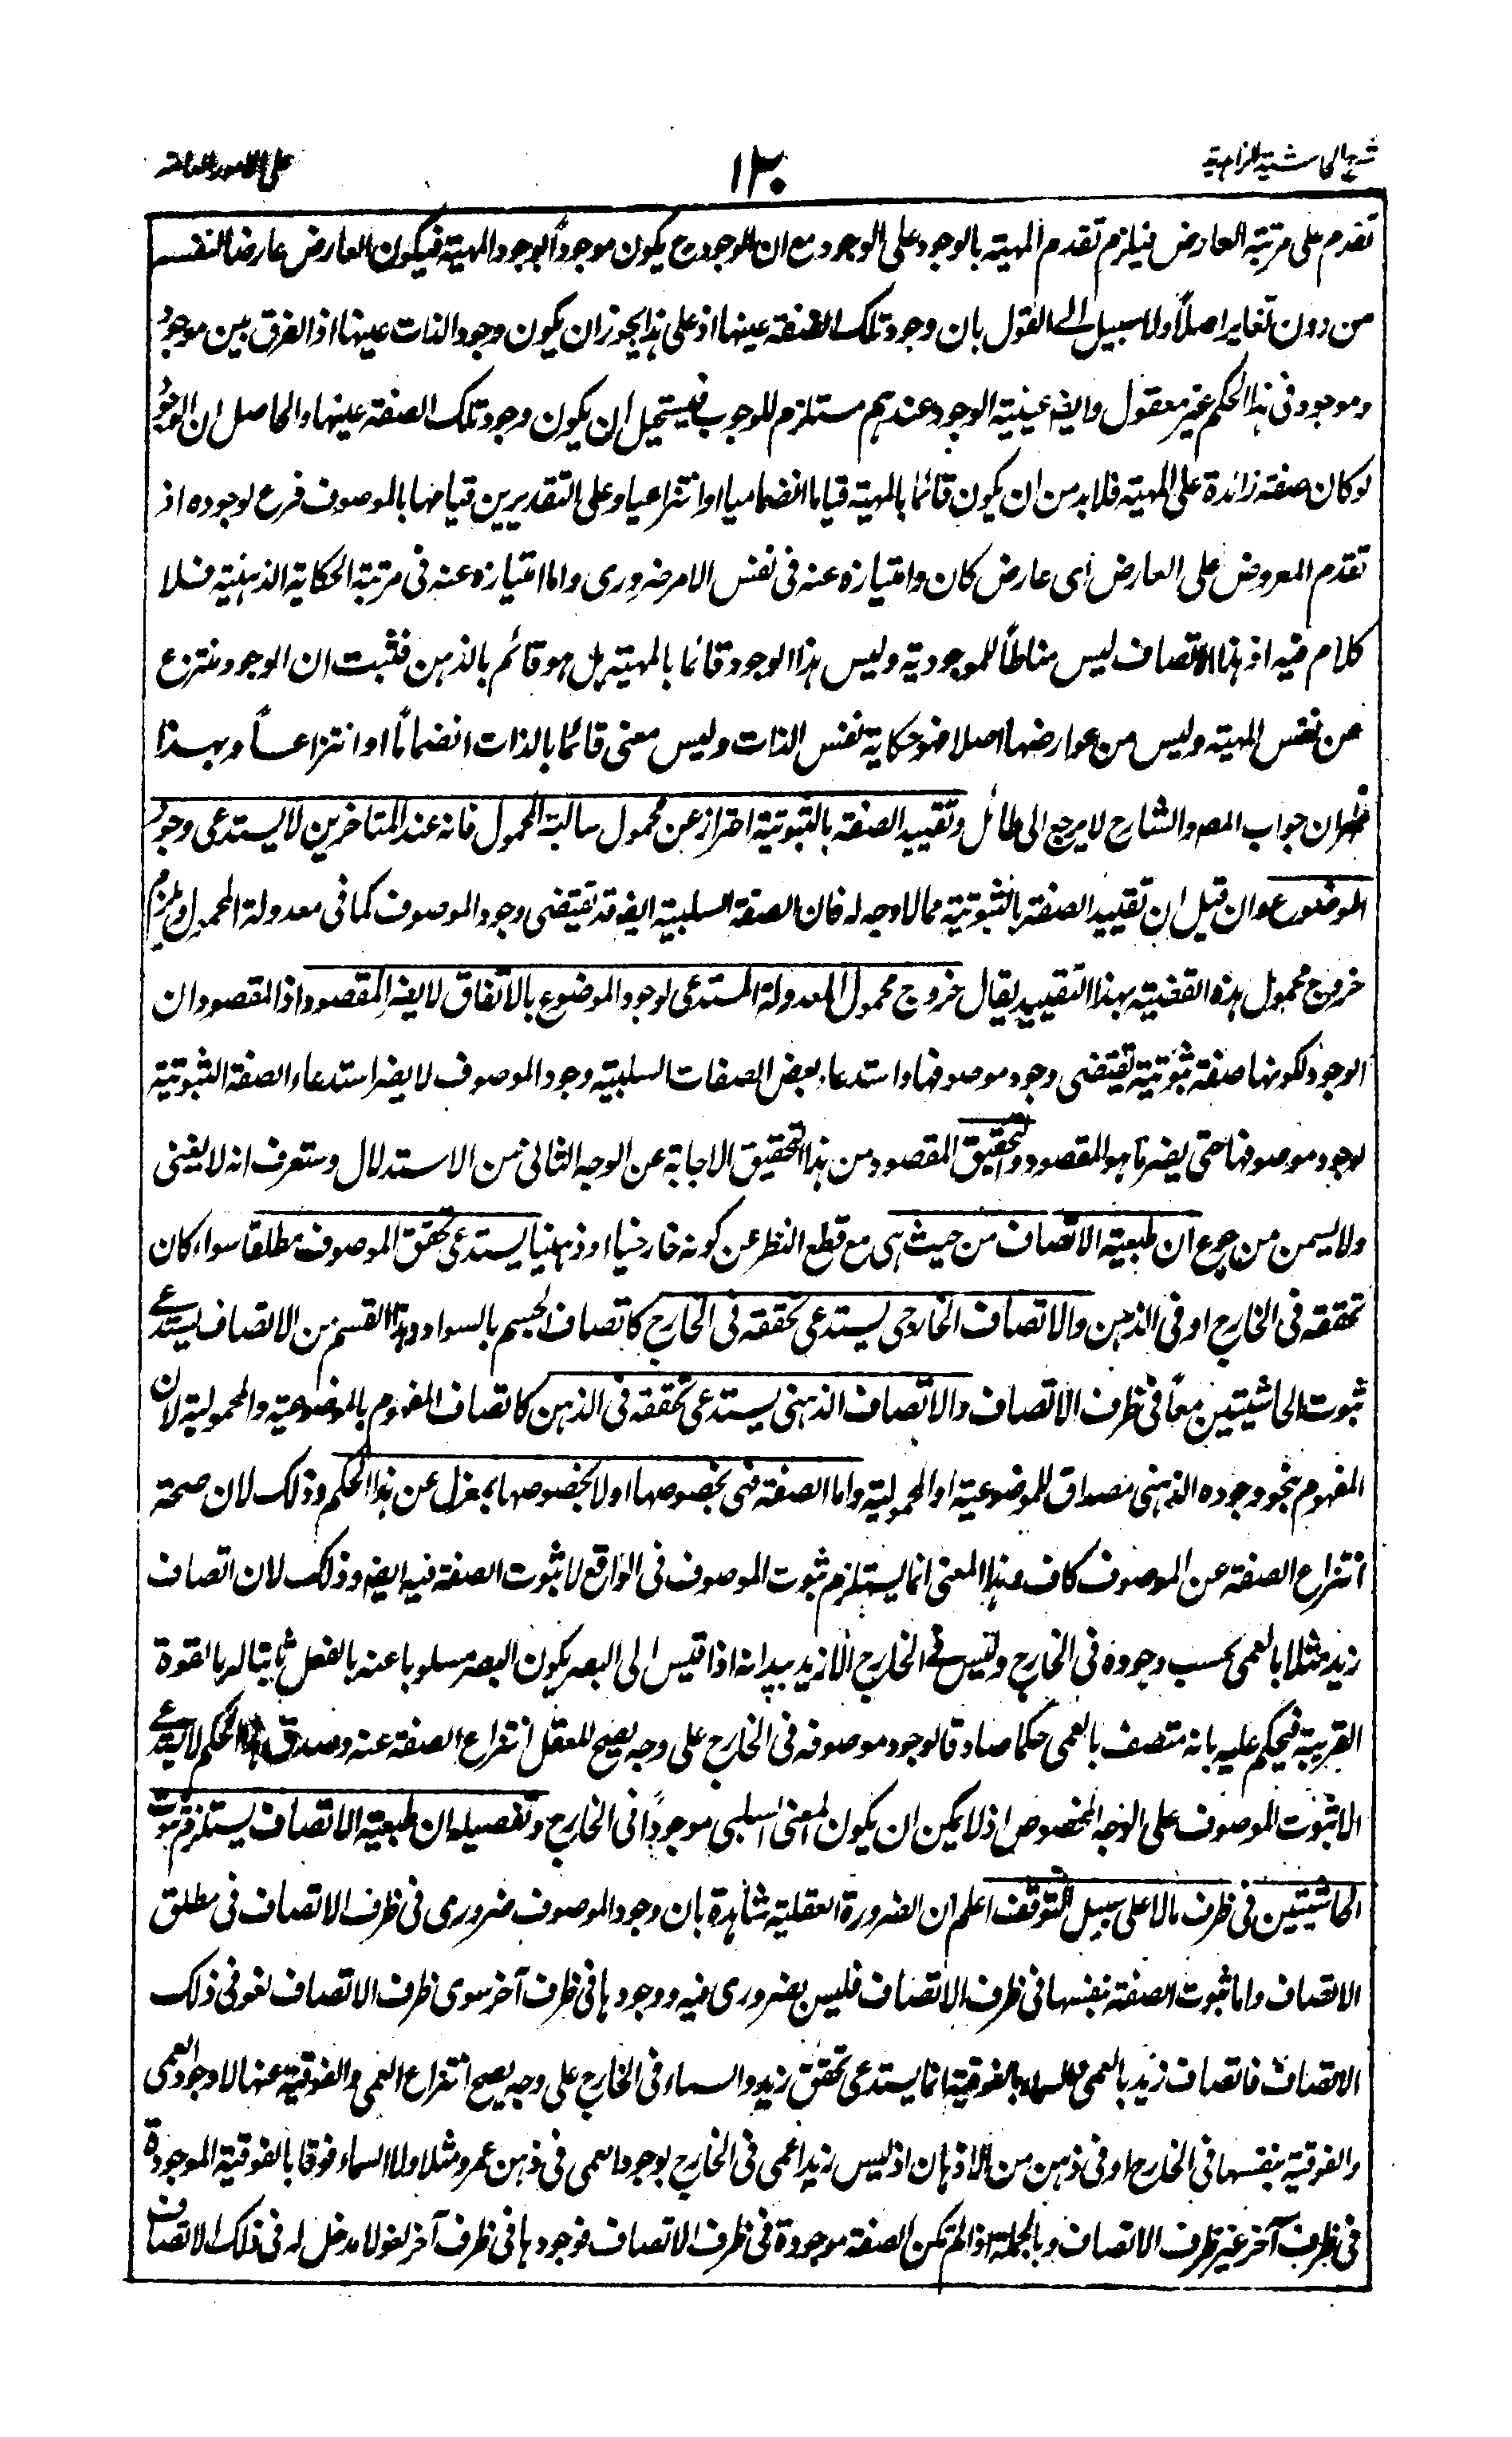 شرح الحاشية الزاهدية
١٣٠
على الامور العامة
تقدم على مرتبة العارض فيلزم تقدم المهية بالوجود على الوجود مع ان الوجود ح يكون موجودا بوجود المهية فيكون العارض عارضا لنفسه
من دون تغاير اصلاً ولا سبيل الى القول بان وجود تلك الصفة عينها اذ على هذا يجوز ان يكون وجود الذات عينها اذ الفرق بين موجود
وموجود فى هذا الحكم غير معقول وايضا عينية الوجود عندهم مستلزم للوجوب فيستحيل ان يكون وجود تلك الصفة عينها والحاصل ان الوجود
لو كان صفة زائدة على المهية فلا بد من ان يكون قائما بالمهية قياما انضماميا او انتزاعيا وعلى التقديرين قيامها بالموصوف فرع لوجوده اذ
تقدم المعروض على العارض اى عارض كان وامتيازه عنه فى نفس الامر ضرورى واما امتيازه عنه فى مرتبة الحكاية الذهنية فلا
كلام فيه اذ هذا الاتصاف ليس مناطاً للموجودية وليس هذا الوجود قائما بالمهية بل هو قائم بالذهن فثبت ان الوجود منتزع
عن نفس المهية وليس من عوارضها اصلا فهو حكاية نفس الذات وليس معنى قائما بالذات انضماماً او انتزاعاً وبهذا
ظهر ان جواب المصـ والشارح لا يرجع الى طائل وتقييد الصفة بالثبوتية احتراز عن محمول سالبة المحمول فانه عند المتاخرين لا يستدعى وجود
الموضوع وان قيل ان تقييد الصفة بالثبوتية مما لا وجه له فان الصفة السلبية ايضا قد تقتضى وجود الموصوف كما فى معدولة المحمول ويلزم
خروج محمول هذه القضية بهذا التقييد يقال خروج محمول المعدولة المستدعى لوجود الموضوع بالاتفاق لا يضر المقصود اذ المقصود ان
الوجود لكونها صفة ثبوتية تقتضى وجود موصوفها واستدعاء بعض الصفات السلبية وجود الموصوف لا يضر استدعاء الصفة الثبوتية
لوجود موصوفها حتى يضر بما هو المقصود والتحقيق المقصود من هذا التحقيق الاجابة عن الوجه الثانى من الاستدلال وستعرف انه لا يغنى
ولا يسمن من جوع ان طبيعة الاتصاف من حيث هى مع قطع النظر عن كونه خارجيا او ذهنيا يستدعى تحقق الموصوف مطلقا سواء كان
تحققه فى الخارج او فى الذهن والاتصاف الخارجى يستدعى تحققه فى الخارج كاتصاف الجسم بالسواد وهذا القسم من الاتصاف يستدعى
ثبوت الحاشيتين معاً فى ظرف الاتصاف والاتصاف الذهنى يستدعى تحققه فى الذهن كاتصاف المفهوم بالموضوعية والمحمولية لان
المفهوم بنحو وجوده الذهنى مصداق للموضوعية او المحمولية واما الصفة فهى بخصوصها اولا بخصوصها بمعزل عن هذا الحكم وذلك لان صحة
انتزاع الصفة عن الموصوف كاف فهذا المعنى انما يستلزم ثبوت الموصوف فى الواقع لا ثبوت الصفة فيه ايضا وذلك لان اتصاف
زيد مثلا بالعمى بحسب وجوده فى الخارج وليس فى الخارج الا زيد بيد انه اذا قيس الى البصر يكون البصر مسلوبا عنه بالفعل ثابتا له بالقوة
القريبة فيحكم عليه بانه متصف بالعمى حكما صادقا لوجود موصوفه فى الخارج على وجه يصح للعقل انتزاع الصفة عنه وصدق هذا الحكم لا يستدعى
الا ثبوت الموصوف على الوجه المخصوص اذ لا يمكن ان يكون المعنى السلبى موجوداً فى الخارج وتفصيله ان طبيعة الاتصاف يستلزم ثبوت
الحاشيتين فى ظرف ما لا على سبيل التوقف اعلم ان الضرورة العقلية شاهدة بان وجود الموصوف ضرورى فى ظرف الاتصاف فى مطلق
الاتصاف واما ثبوت الصفة بنفسها فى ظرف الاتصاف فليس بضرورى فيه ووجودها فى ظرف آخر سوى ظرف الاتصاف لغو فى ذلك
الاتصاف فاتصاف زيد بالعمى والسماء بالفوقية انما يستدعى تحقق زيد والسماء فى الخارج على وجه يصح انتزاع العمى والفوقية عنها لا وجود العمى
والفوقية بنفسها فى الخارج او فى ذهن من الاذهان اذ ليس زيد اعمى فى الخارج بوجود العمى فى ذهن عمرو مثلا ولا السماء فوقا بالفوقية الموجودة
فى ظرف آخر غير ظرف الاتصاف وبالجملة اذا لم تكن الصفة موجودة فى ظرف الاتصاف فوجودها فى ظرف آخر لغو لا مدخل له فى ذلك الاتصاف